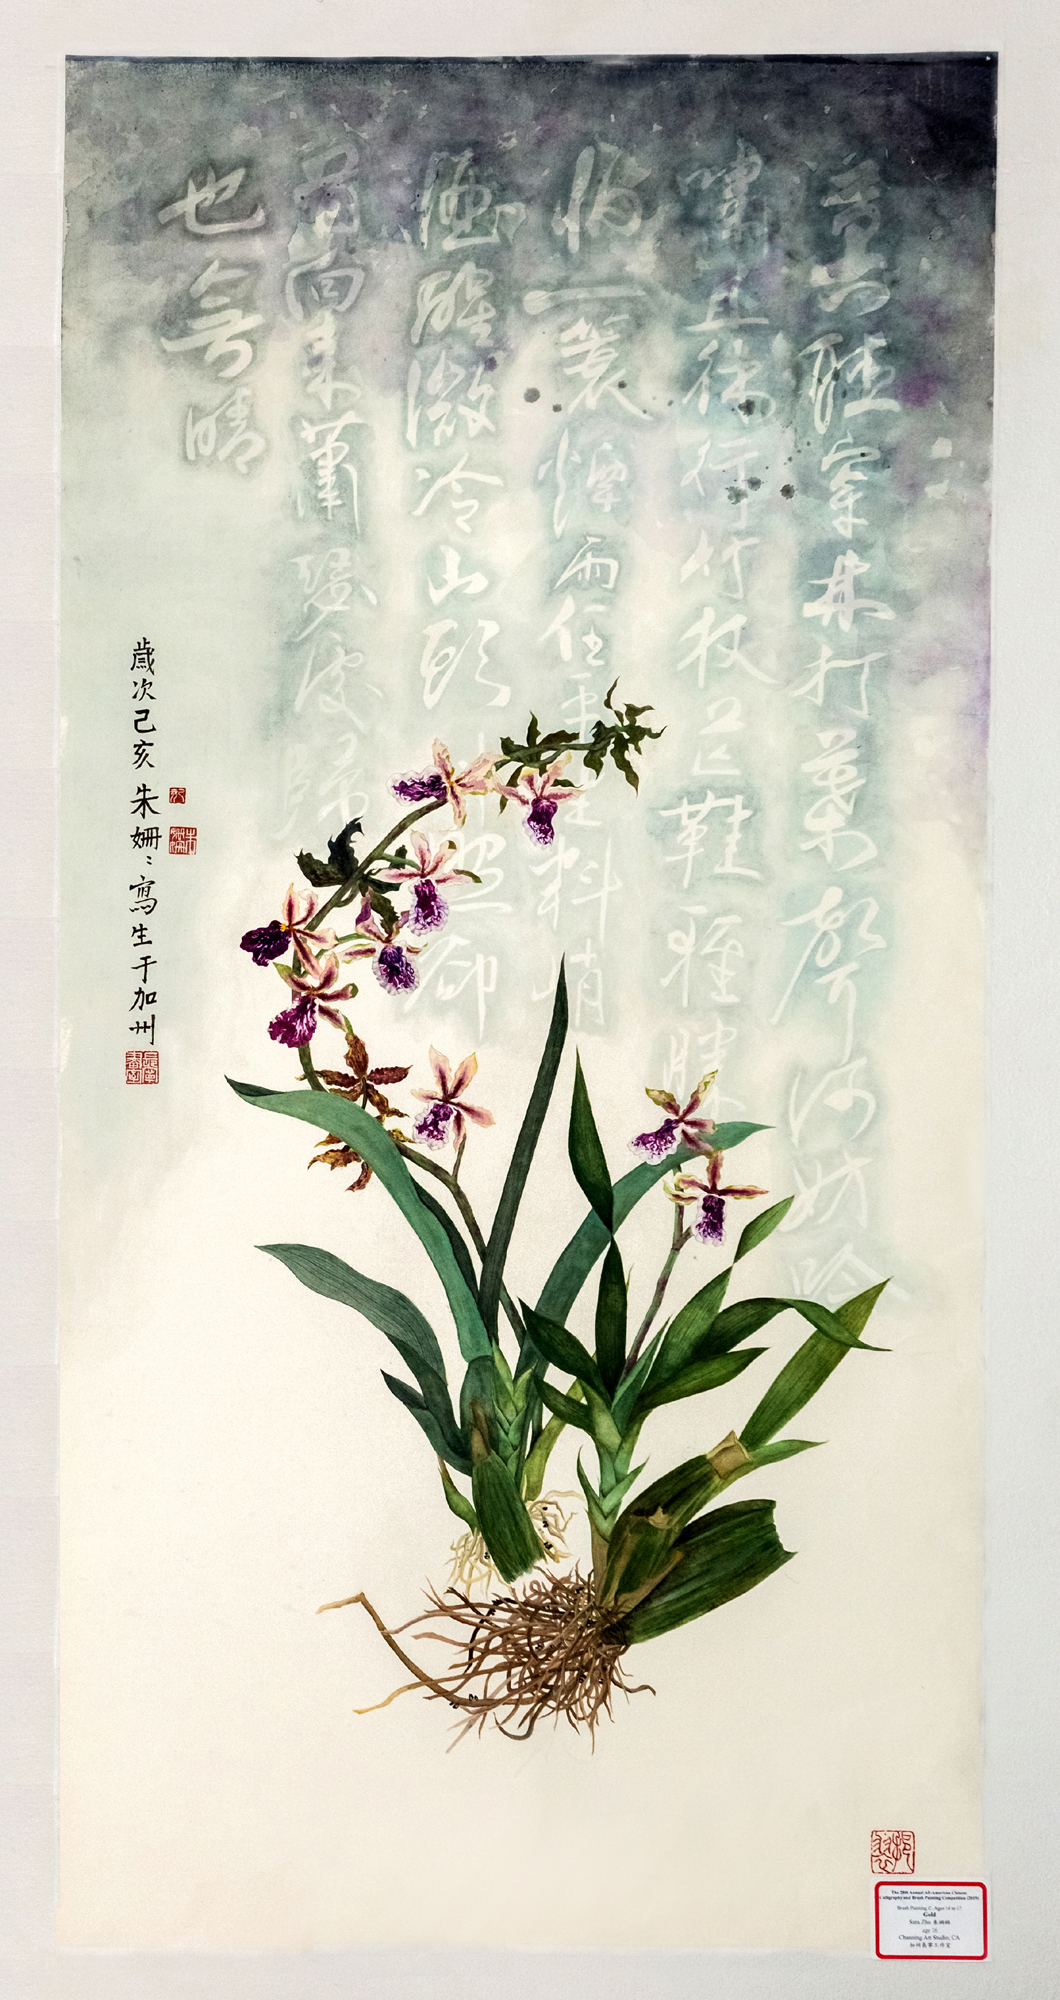 聽穿林打葉聲何妨吟
嘯且徐行竹杖芒鞋輕勝
怕一蓑煙雨任平生料峭
酒醒微冷山頭斜照卻
首向來蕭瑟處歸
也無晴
歲次己亥 朱姍〻寫生于加州
Annual All-American Chinese
Calligraphy and Brush Painting Competition (2019)
Brush Painting C: Ages 14 to 17
Gold
Sara Zhu 朱姍姍
age 16
Art Studio, CA
工作室